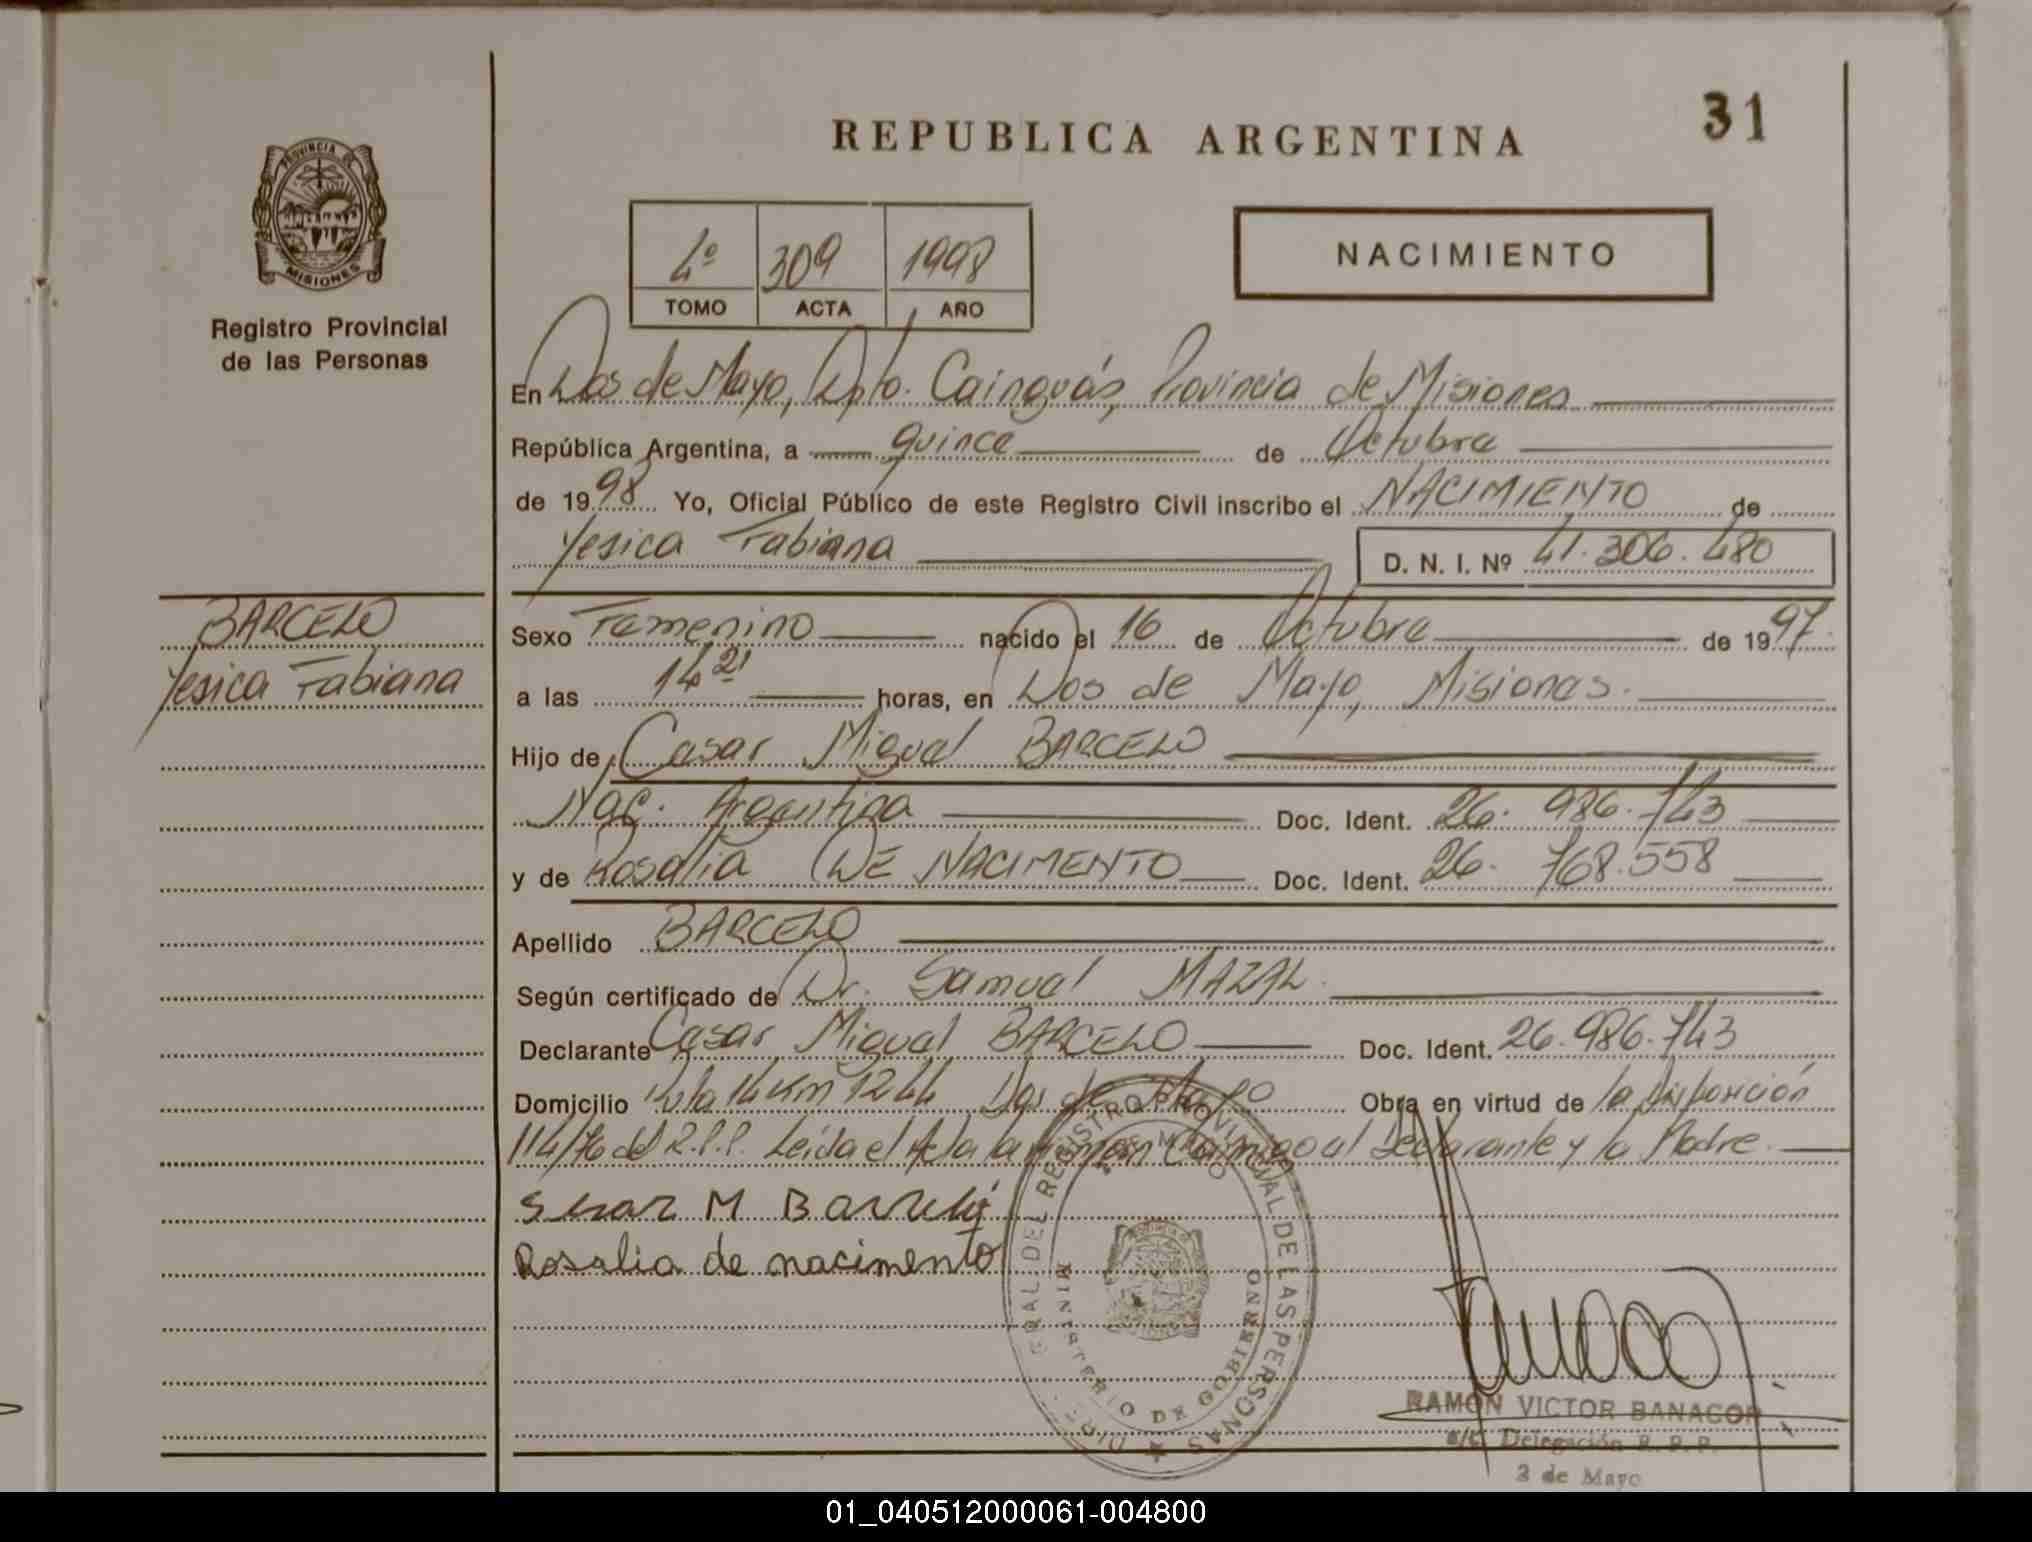 31
REPUBLICA ARGENTINA
PROVINCIA DE
MISIONES
Registro Provincial
de las Personas
4º 309 1998
TOMO ACTA AÑO
NACIMIENTO
En Dos de Mayo, Dpto. Cainguás, Provincia de Misiones
República Argentina, a quince de Octubre
de 1998 Yo, Oficial Público de este Registro Civil inscribo el NACIMIENTO de
Yesica Fabiana D. N. I. Nº 41.306.480
BARCELO
Yesica Fabiana
Sexo Femenino nacido el 16 de Octubre de 1997.
a las 14 21 horas, en Dos de Mayo, Misiones.
Hijo de Cesar Miguel BARCELO
Nac. Argentina Doc. Ident. 26.986.743
y de Rosalia DE NACIMENTO Doc. Ident. 26.768.558
Apellido BARCELO
Según certificado de Dr. Samuel MAZAL.
Declarante Cesar Miguel BARCELO Doc. Ident. 26.986.743
Domicilio Ruta 14 Km 1244 Dos de Mayo Obra en virtud de la Disposición
114/76 del R.P.P. Leída el Acta la firman Conmigo el Declarante y la Madre.
Rosalia de nacimento
REGISTRO PROVINCIAL DE LAS PERSONAS
MINISTERIO DE GOBIERNO
RAMON VICTOR BANACOR
a/c Delegación R. P. P.
2 de Mayo
01_040512000061-004800